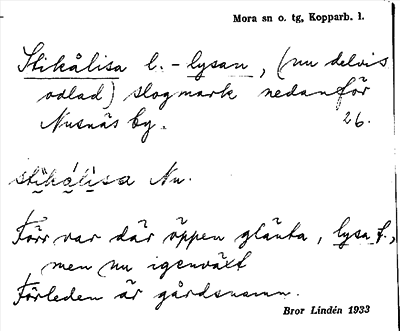 Mora sn o. tg, Kopparb. l.
Stikålisa l. -lysan, (nu delvis
odlad) slogmark nedanför
Nusnäs by. 26.
stikálisa Nu.
Förr var där öppen glänta, lysa f.,
men nu igenväxt
Förleden är gårdsnamn.
Bror Lindén 1933